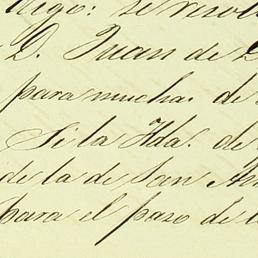 digo: se resol
D. Juan de
para mucha. de
Si la Hda. de
de la de San An
para el paso de l